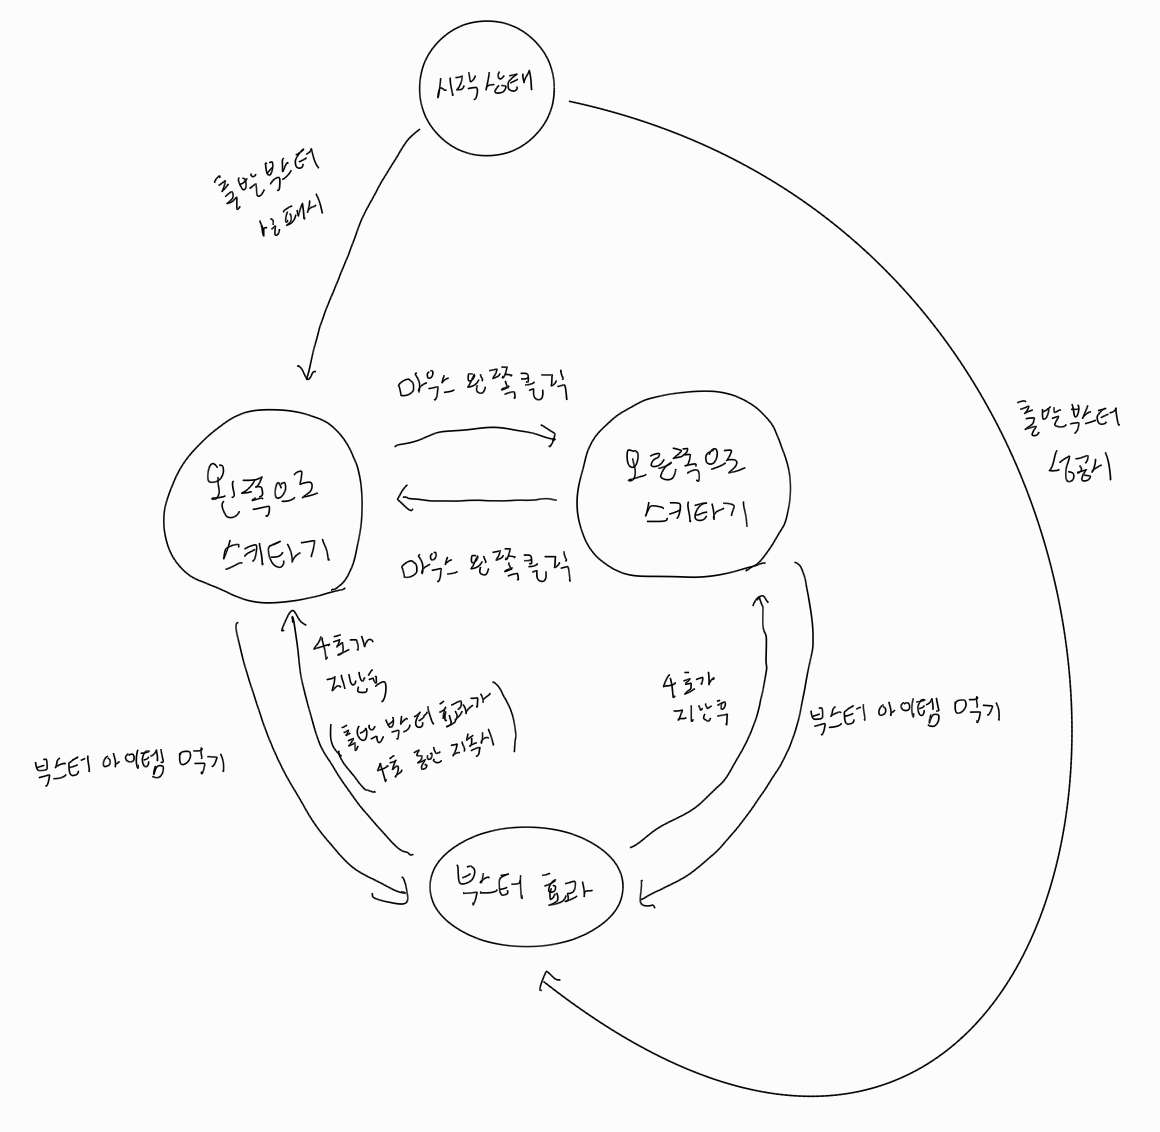 시작상태
출발부스터
실패시
마우스 왼쪽클릭
출발부스터
성공시
왼쪽으로
스키타기
오른쪽으로
스키타기
마우스 왼쪽클릭
4초가
지난후
(출발부스터 효과가
4초 동안 지속시)
4초가
지난후
부스터 아이템 먹기
부스터 아이템 먹기
부스터 효과